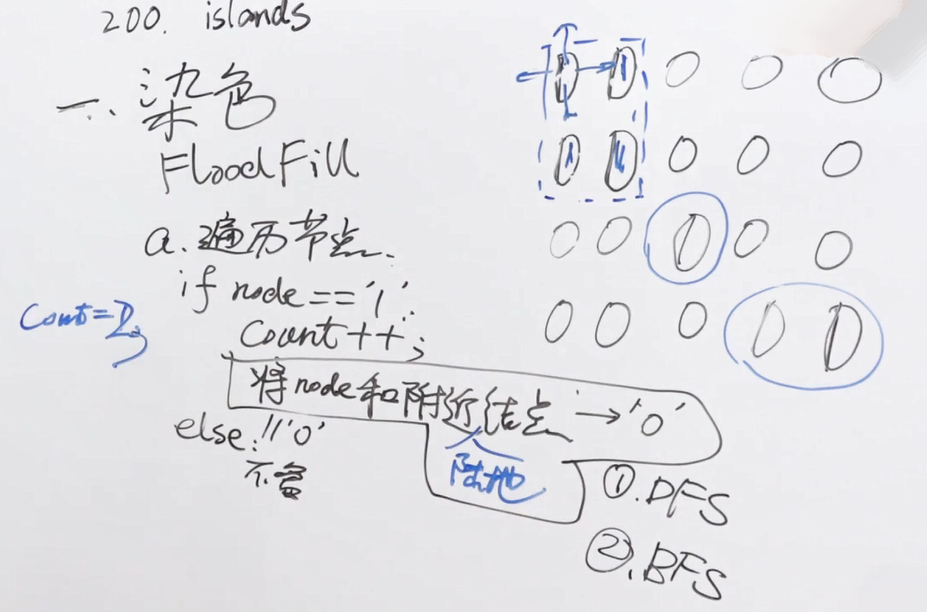 200. islands
一. 染色
FloodFill
a. 遍历节点.
if node=='1':
count++;
将node和附近结点→'0'
陆地
else: //'0'
不管
①.DFS
②.BFS
1 1 0 0 0
1 1 0 0 0
0 0 1 0 0
0 0 0 1 1